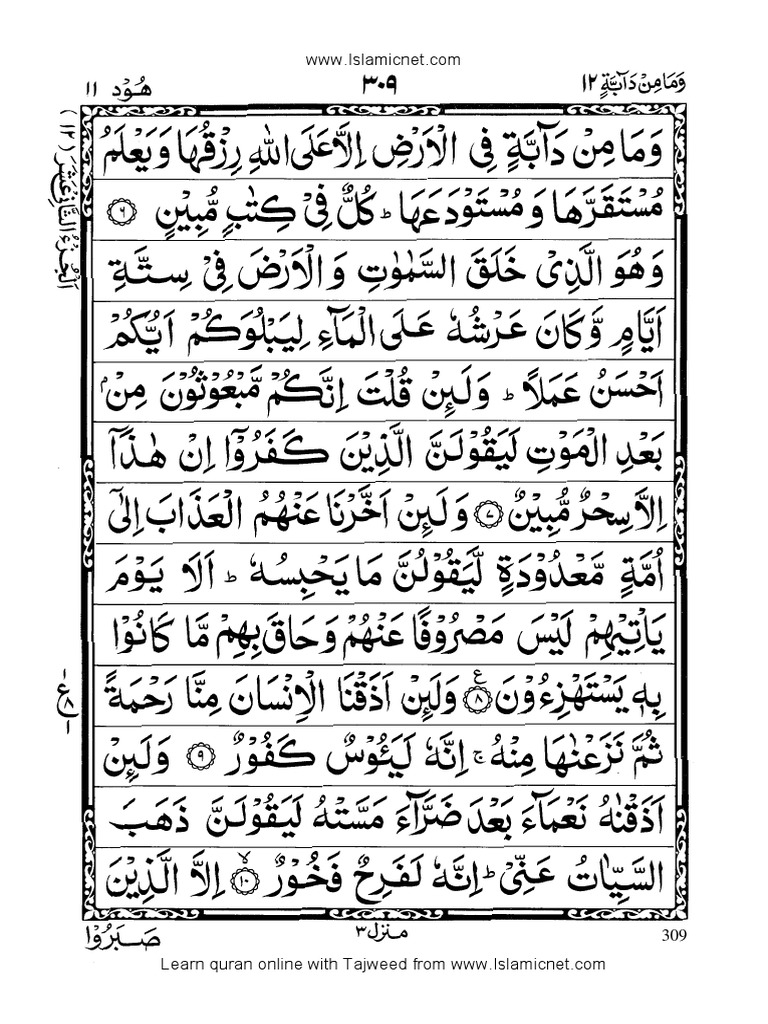 www.Islamicnet.com
وَمَا مِنْ دَآبَّةٍ ١٢
٣٠٩
هُوْد ١١
اَلْجُزْءُ الثَّانِيْ عَشَرَ (١٢)
وَمَا مِنْ دَآبَّةٍ فِي الْاَرْضِ اِلَّا عَلَى اللّٰهِ رِزْقُهَا وَيَعْلَمُ
مُسْتَقَرَّهَا وَمُسْتَوْدَعَهَا ؕ كُلٌّ فِيْ كِتٰبٍ مُّبِيْنٍ ﴿٦﴾
وَهُوَ الَّذِيْ خَلَقَ السَّمٰوٰتِ وَالْاَرْضَ فِيْ سِتَّةِ
اَيَّامٍ وَّكَانَ عَرْشُهٗ عَلَى الْمَآءِ لِيَبْلُوَكُمْ اَيُّكُمْ
اَحْسَنُ عَمَلًا ؕ وَلَىِٕنْ قُلْتَ اِنَّكُمْ مَّبْعُوْثُوْنَ مِنْۢ
بَعْدِ الْمَوْتِ لَيَقُوْلَنَّ الَّذِيْنَ كَفَرُوْٓا اِنْ هٰذَآ
اِلَّا سِحْرٌ مُّبِيْنٌ ﴿٧﴾ وَلَىِٕنْ اَخَّرْنَا عَنْهُمُ الْعَذَابَ اِلٰٓى
اُمَّةٍ مَّعْدُوْدَةٍ لَّيَقُوْلُنَّ مَا يَحْبِسُهٗ ؕ اَلَا يَوْمَ
يَاْتِيْهِمْ لَيْسَ مَصْرُوْفًا عَنْهُمْ وَحَاقَ بِهِمْ مَّا كَانُوْا
بِهٖ يَسْتَهْزِءُوْنَ ﴿٨﴾ ع وَلَىِٕنْ اَذَقْنَا الْاِنْسَانَ مِنَّا رَحْمَةً
ثُمَّ نَزَعْنٰهَا مِنْهُ ۚ اِنَّهٗ لَيَـُٔوْسٌ كَفُوْرٌ ﴿٩﴾ وَلَىِٕنْ
اَذَقْنٰهُ نَعْمَآءَ بَعْدَ ضَرَّآءَ مَسَّتْهُ لَيَقُوْلَنَّ ذَهَبَ
السَّيِّاٰتُ عَنِّيْ ؕ اِنَّهٗ لَفَرِحٌ فَخُوْرٌ ﴿١٠﴾ ۙ اِلَّا الَّذِيْنَ
صَبَرُوْا
منزل ٣
309
Learn quran online with Tajweed from www.Islamicnet.com